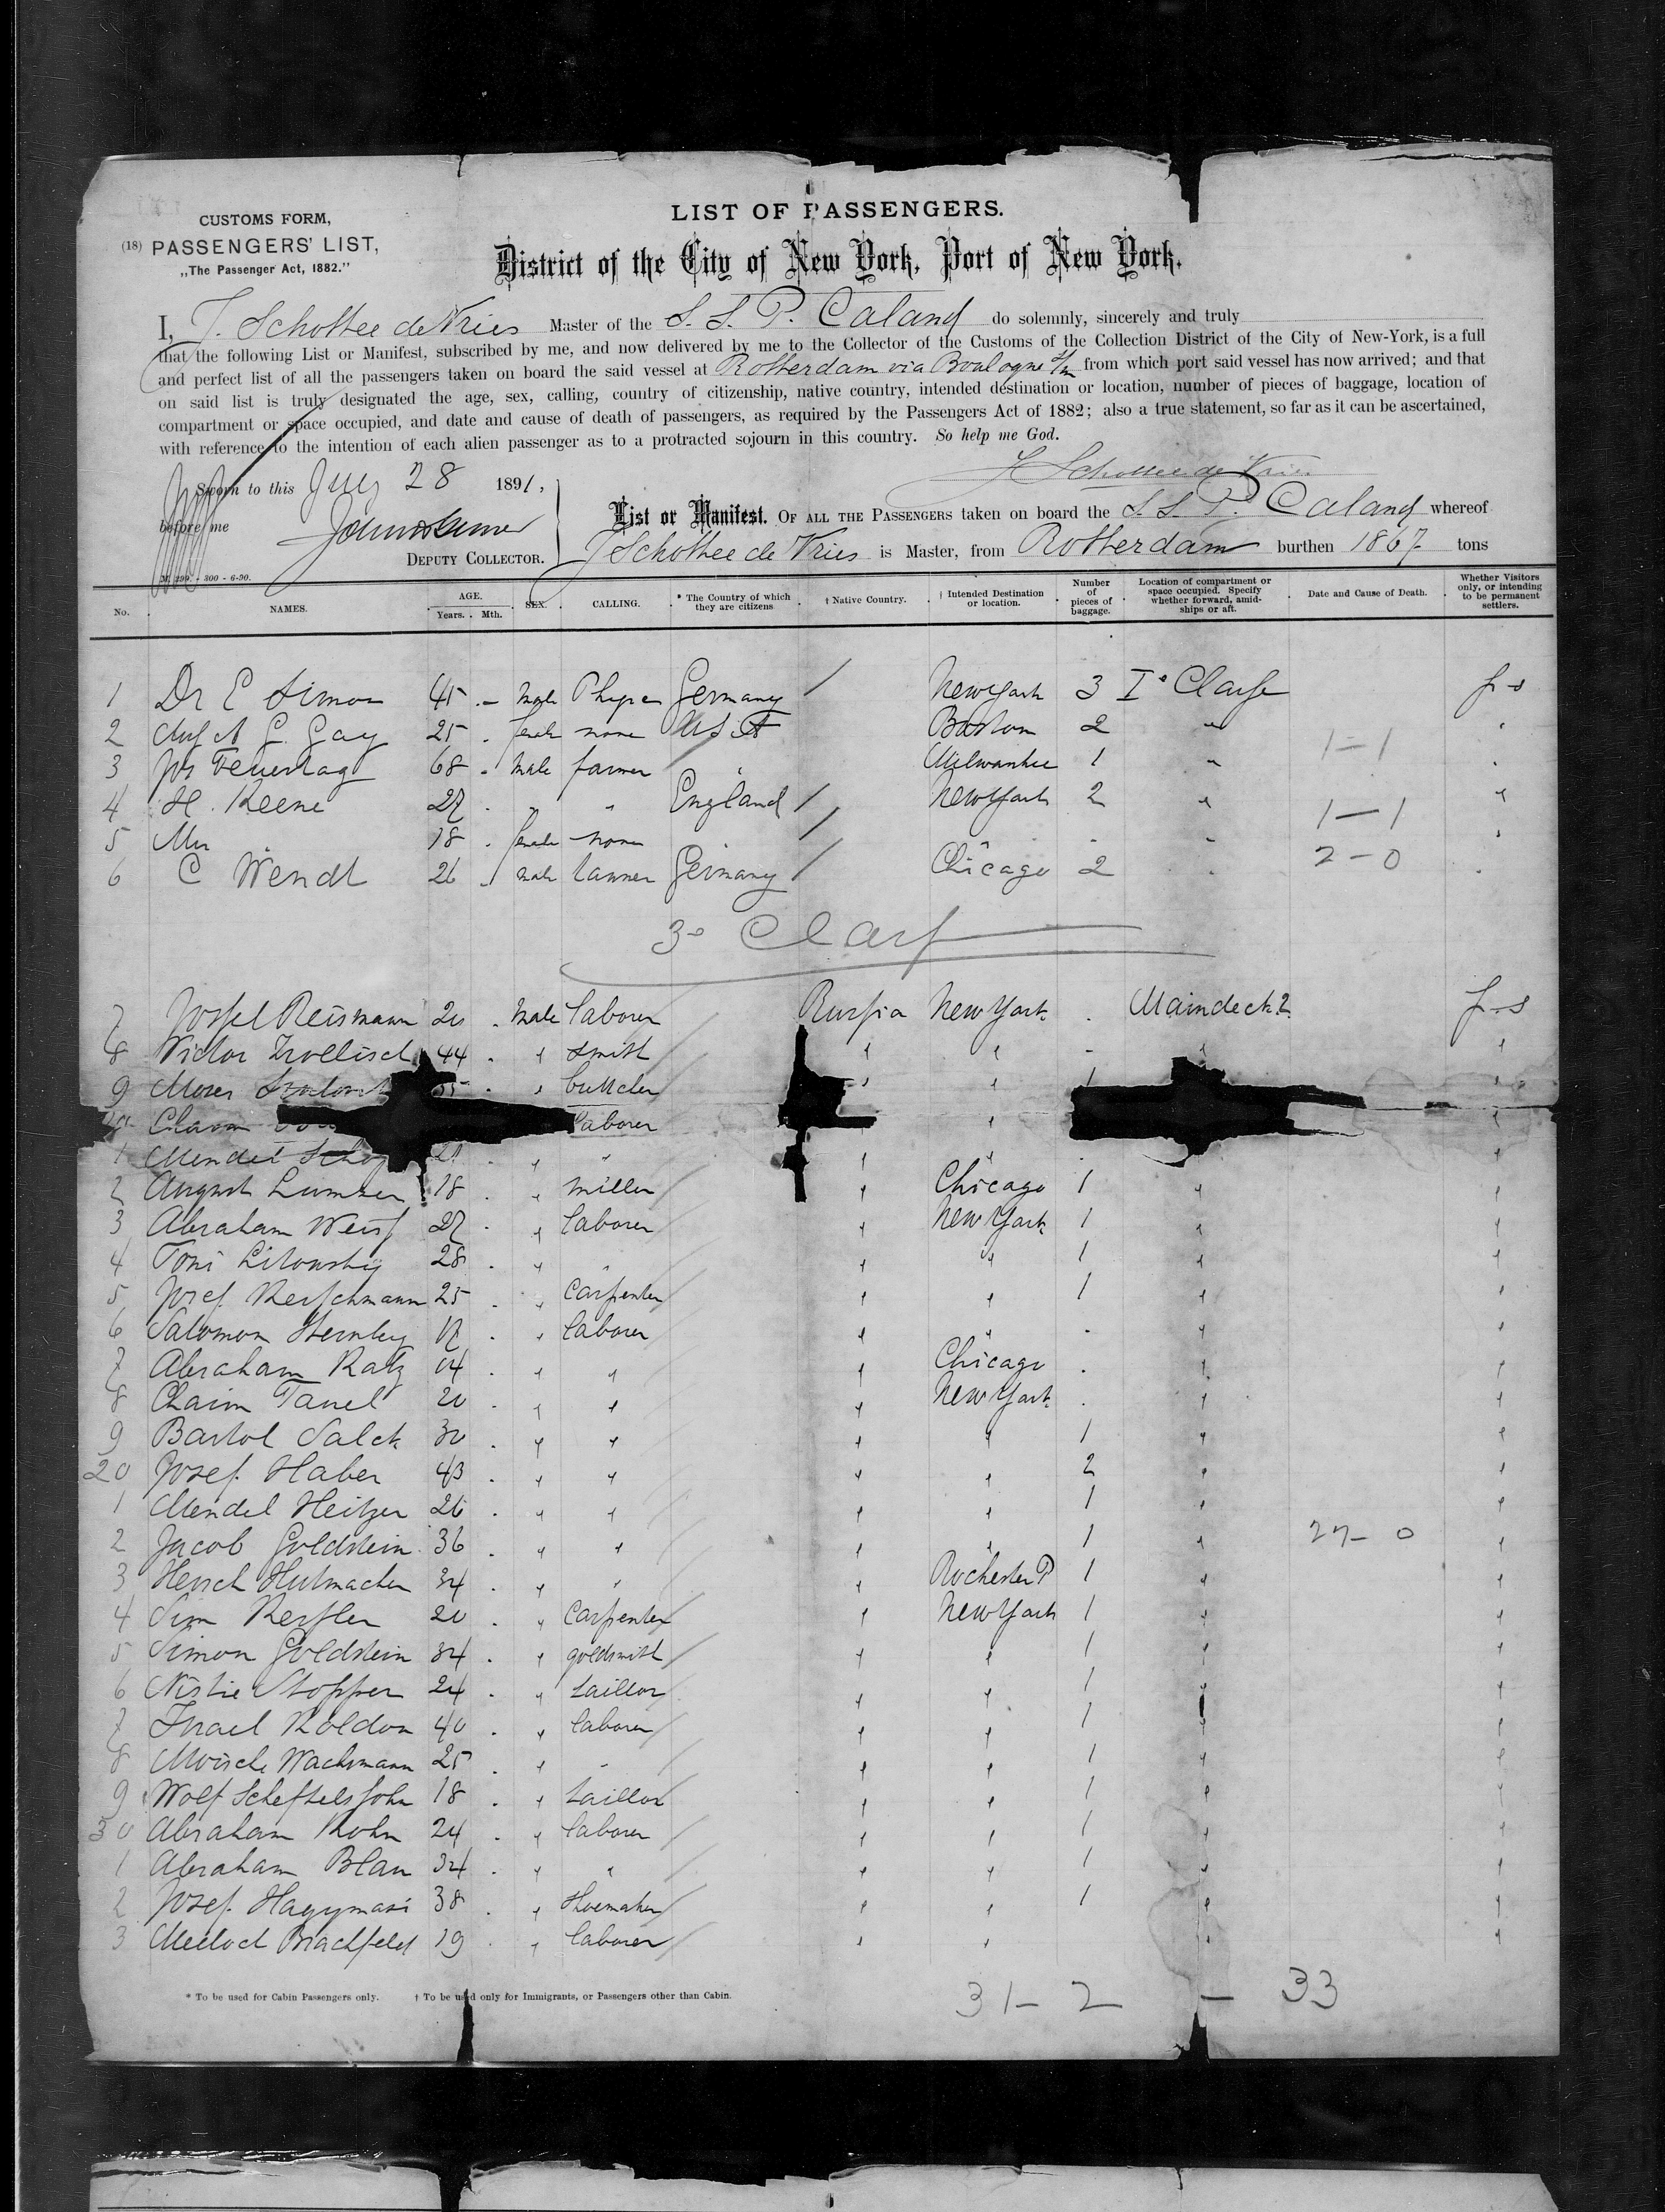 LIST OF PASSENGERS.
CUSTOMS FORM,
(18) PASSENGERS' LIST,
„The Passenger Act, 1882."
District of the City of New York, Port of New York.
I, J. Schottee de Vries Master of the S. S. P. Caland do solemnly, sincerely and truly
that the following List or Manifest, subscribed by me, and now delivered by me to the Collector of the Customs of the Collection District of the City of New-York, is a full
and perfect list of all the passengers taken on board the said vessel at Rotterdam via Boulogne s/m from which port said vessel has now arrived; and that
on said list is truly designated the age, sex, calling, country of citizenship, native country, intended destination or location, number of pieces of baggage, location of
compartment or space occupied, and date and cause of death of passengers, as required by the Passengers Act of 1882; also a true statement, so far as it can be ascertained,
with reference to the intention of each alien passenger as to a protracted sojourn in this country. So help me God.
J Schottee de Vries
Sworn to this 28 1891,
before me
DEPUTY COLLECTOR.
List or Manifest. OF ALL THE PASSENGERS taken on board the S. S. P. Caland whereof
J Schottee de Vries is Master, from Rotterdam burthen 1867 tons
- 300 - 6-90.
No. NAMES. AGE. Years. Mth. SEX. CALLING. * The Country of which they are citizens † Native Country. † Intended Destination or location. Number of pieces of baggage. Location of compartment or space occupied. Specify whether forward, amidships or aft. Date and Cause of Death. Whether Visitors only, or intending to be permanent settlers.
1 Dr E Simon 45 - Male Germany / New York 3 I° Classe
2 G. Gay 25 . female none USA Boston 2 "
3 Jos Feuertag 68 . Male farmer " Milwaukee 1 " 1-1
4 H. Keene 27 . " " England / New York 2 "
5 Mrs " 18 . female none " / " - " 1-1
6 C Wendt 26 . male tanner Germany / Chicago 2 " 2-0
3° Class
7 Jossel Reismann 20 . Male laborer Russia New York . Maindeck 2.
8 Victor 44 . " smith " " - "
9 Moses " butcher " " 1
10 Chaim laborer "
1 Mendel 21 . " " " " .
2 August 18 . " miller " Chicago 1 "
3 Abraham Weiss 27 . " laborer " New York 1 "
4 Toni Litowsky 28 . " " " " 1 "
5 Josef Kerschmann 25 . " Carpenter " " 1 "
6 Salomon Sternberg 17 . " laborer " " . "
7 Abraham Katz 04 . " " " Chicago . "
8 Chaim 20 . " " " New York . "
9 Bartol Salek 30 . " " " " 1 "
20 Josef Haber 43 . " " " " 2 "
1 Mendel Heitzer 26 . " " " " 1 "
2 Jacob Goldstein 36 . " " " " 1 " 27-0
3 Hersch Hutmacher 34 . " " " Rochester 1 "
4 Sim Kessler 20 . " Carpenter " New York 1 "
5 Simon Goldstein 34 . " goldsmith " " 1 "
6 Stopper 24 . " taillor " " 1 "
7 Israel Koldon 40 . " laborer " " 1 "
8 Moische Wachsmann 25 . " " " " 1 "
9 Wolf Scheftelssohn 18 . " taillor " " 1 "
30 Abraham Kohn 24 . " laborer " " 1 "
1 Abraham Blau 34 . " " " " 1 "
2 Josef Hagymasi 38 . " shoemaker " " 1 "
3 Meiloch Brachfeld 19 . " laborer " " "
* To be used for Cabin Passengers only. † To be used only for Immigrants, or Passengers other than Cabin.
31- 2 - 33